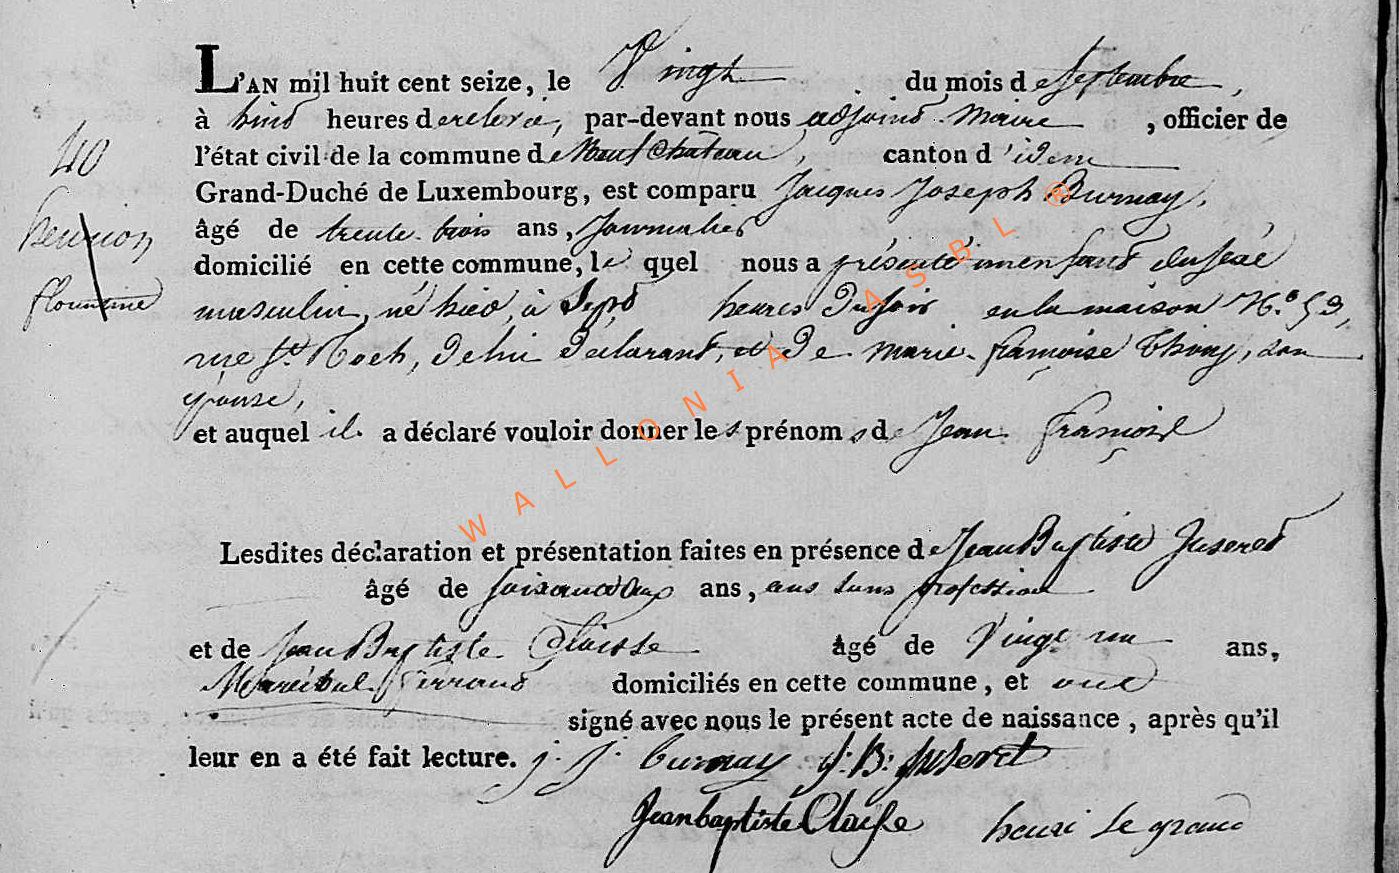 L'AN mil huit cent seize, le Vingt du mois de Septembre,
à huit heures de relevée, par-devant nous adjoint Maire, officier de
40
l'état civil de la commune de Neufchâteau, canton d'idem
Grand-Duché de Luxembourg, est comparu Jacques Joseph Burnay,
âgé de trente trois ans, Journalier
domicilié en cette commune, le quel nous a présenté un enfant du sexe
florentine
masculin, né hier, à Sept heures du soir en la maison N.° 59,
rue St. Roch, de lui déclarant, et de marie françoise Thiry, son
épouse,
et auquel il a déclaré vouloir donner les prénoms de Jean François
Lesdites déclaration et présentation faites en présence de Jean Baptiste Juseret
âgé de ans, sans profession
et de Jean Baptiste Claisse âgé de Vingt un ans,
Maréchal ferrant domiciliés en cette commune, et ont
signé avec nous le présent acte de naissance, après qu'il
leur en a été fait lecture. j. j. burnay J: B: Juseret
Jean baptiste Claisse henri Le grand
WALLONIA ASBL ®